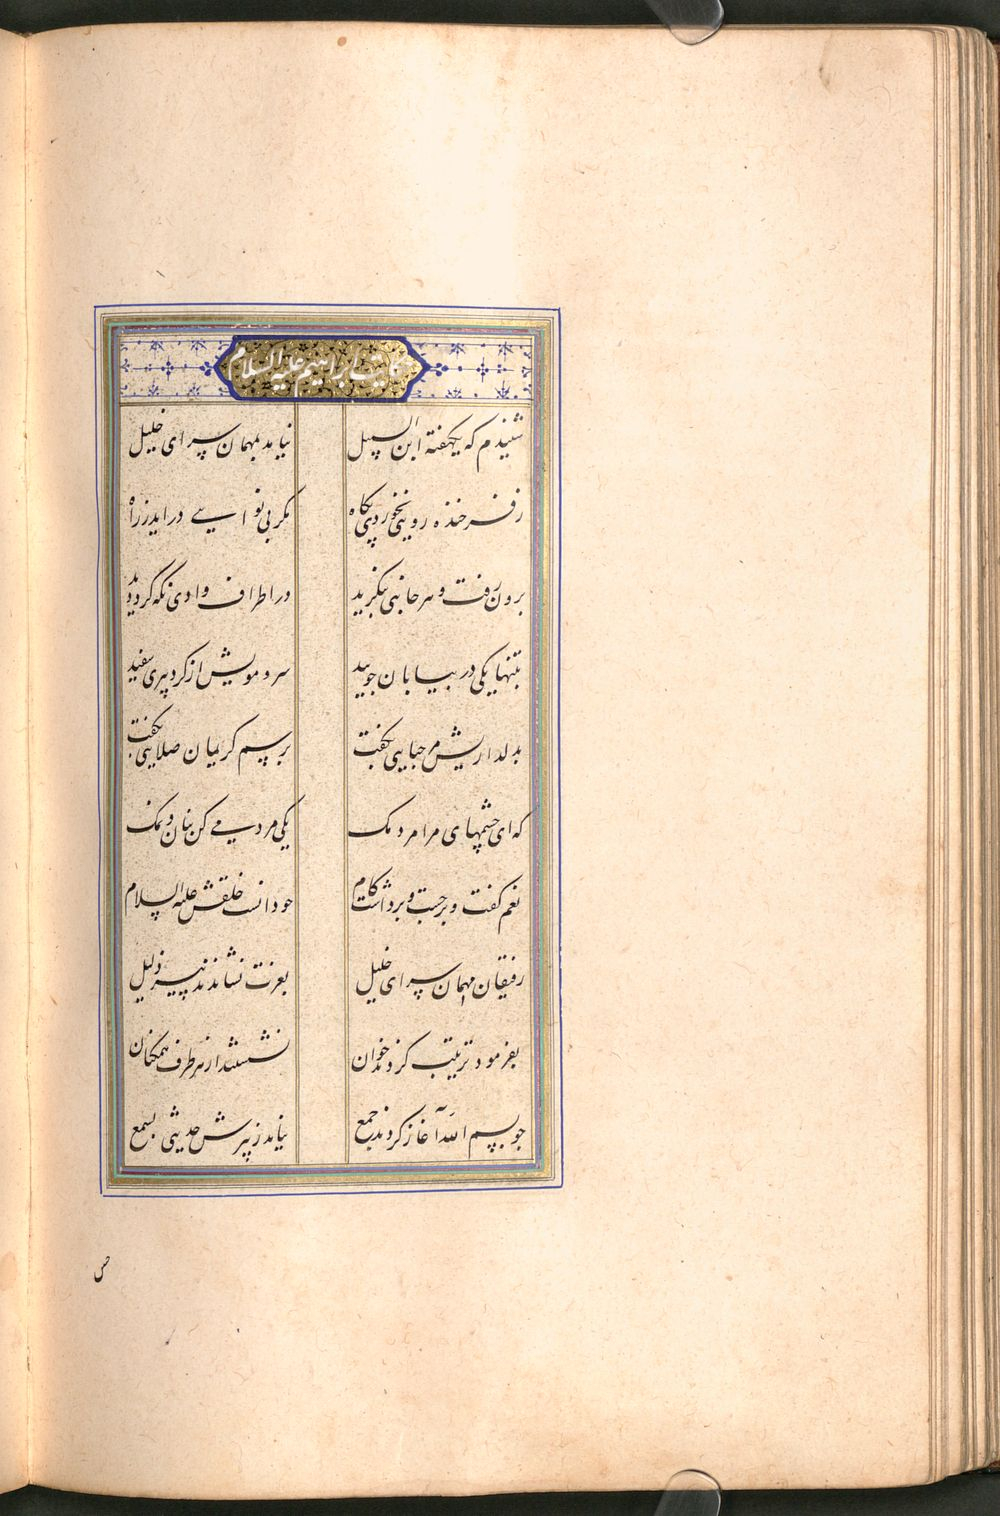 حکایت ابراهیم علیه السلام
شنیدم که یکهفته ابن السبیل نیامد بمهمان سرای خلیل
ز فرخنده رویی نخوردی پکاه مکر بی نوایی در اید ز راه
برون رفت و هر جانبی بنکرید در اطراف وادی نکه کرد و دید
بتنها یکی در بیابان جو بید سر و مویش از کرد پیری سفید
بدلداریش مرحبایی بکفت برسم کریمان صلایی بکفت
که ای چشمهای مرا مردمک یکی مردمی کن بنان و نمک
نعم کفت و برجست و برداشت کام جو دانست خلقش علیه السلام
رفیقان مهمان سرای خلیل بعزت نشاندند پیر ذلیل
بفرمود ترتیب کردند خوان نشستند از هر طرف همکنان
جو بسم الله آغاز کردند جمع نیامد ز پیرش حدیثی بسمع